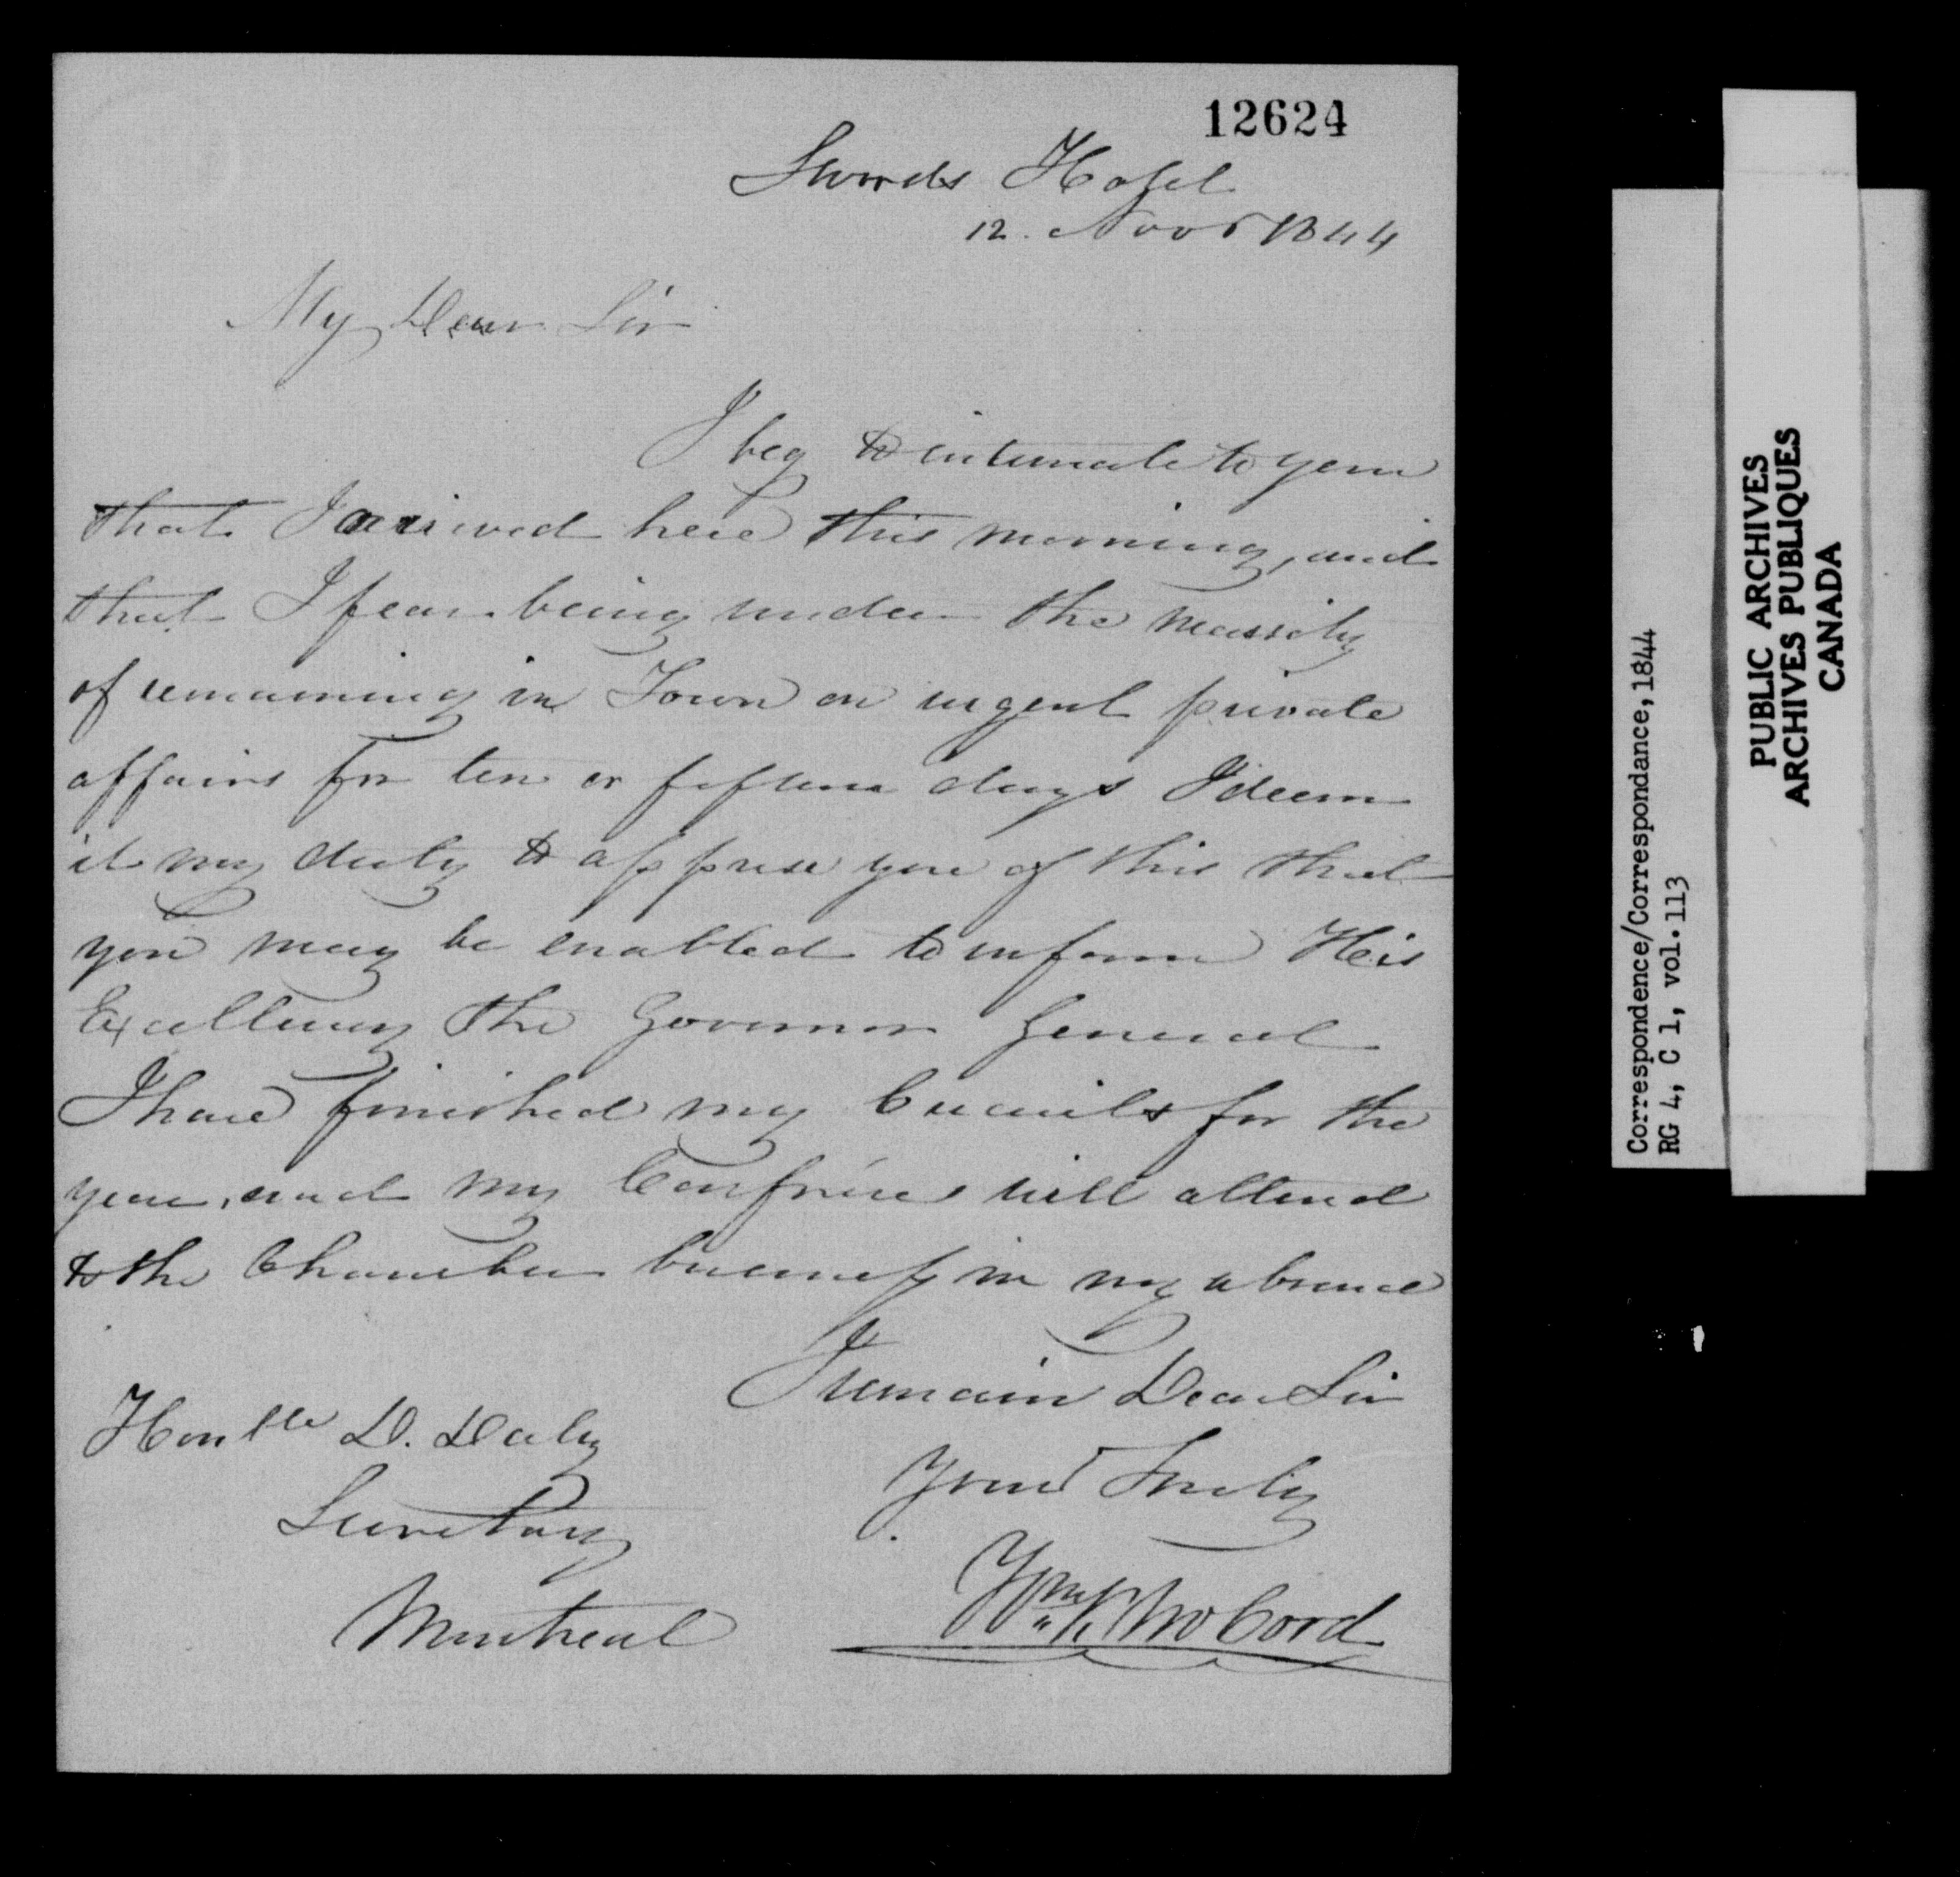 12624
Swords Hotel
12. Novr 1844
My Dear Sir
I beg to intimate to you
that I arrived here this morning, and
that I fear being under the necessity
of remaining in Town on urgent private
affairs for ten or fifteen days I deem
it my duty to apprise you of this that
you may be enabled to inform His
Excellency the Governor General
I have finished my Circuits for the
year, and my Confrères will attend
to the Chamber business in my absence
I remain Dear Sir
Yours Truly
Wm K McCord
Honble D. Daly
Secretary
Montreal
Correspondence/Correspondance, 1844
RG 4, C 1, vol. 113
PUBLIC ARCHIVES
ARCHIVES PUBLIQUES
CANADA